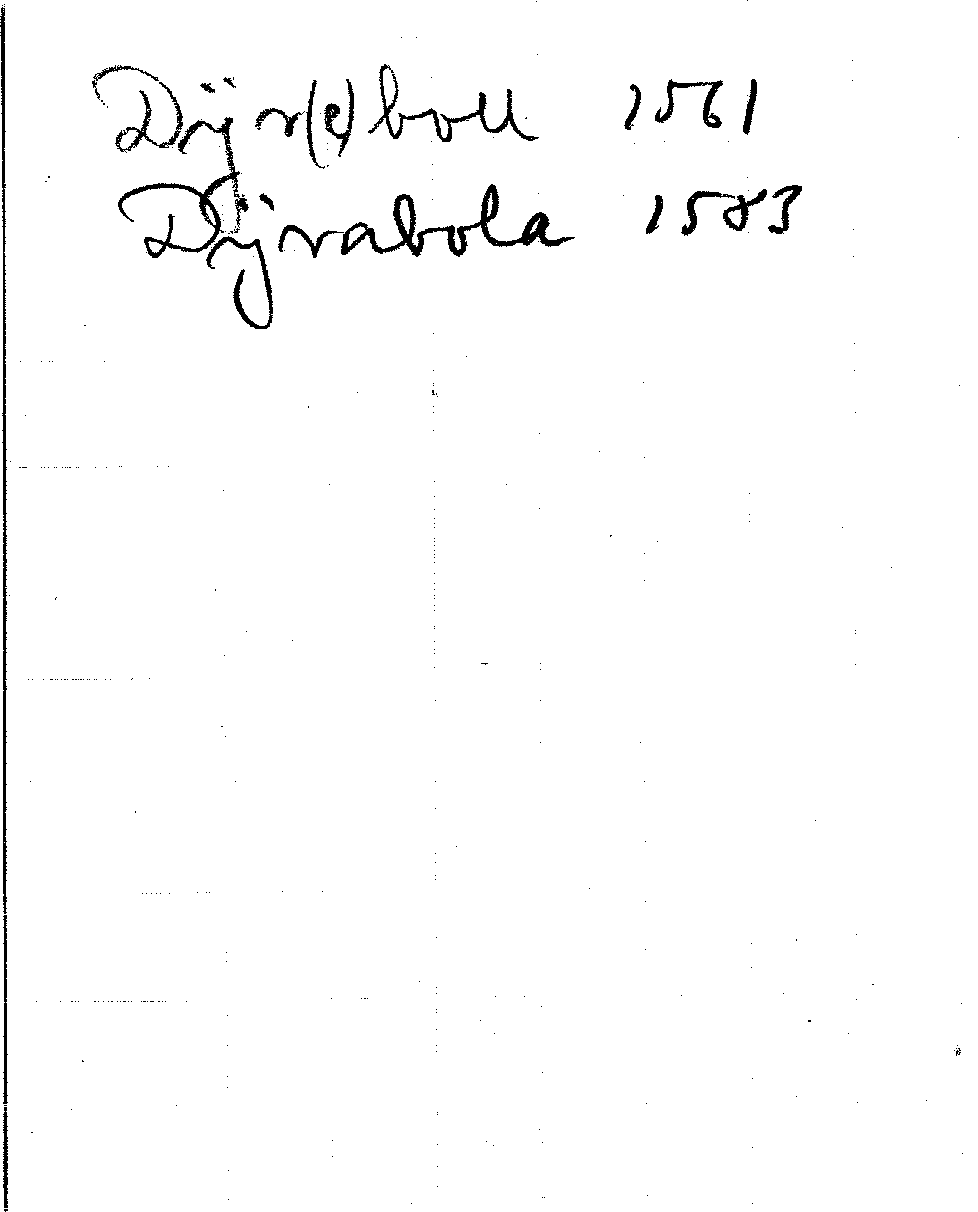 Dÿr(e)boll 1561
Dÿrabola 1583